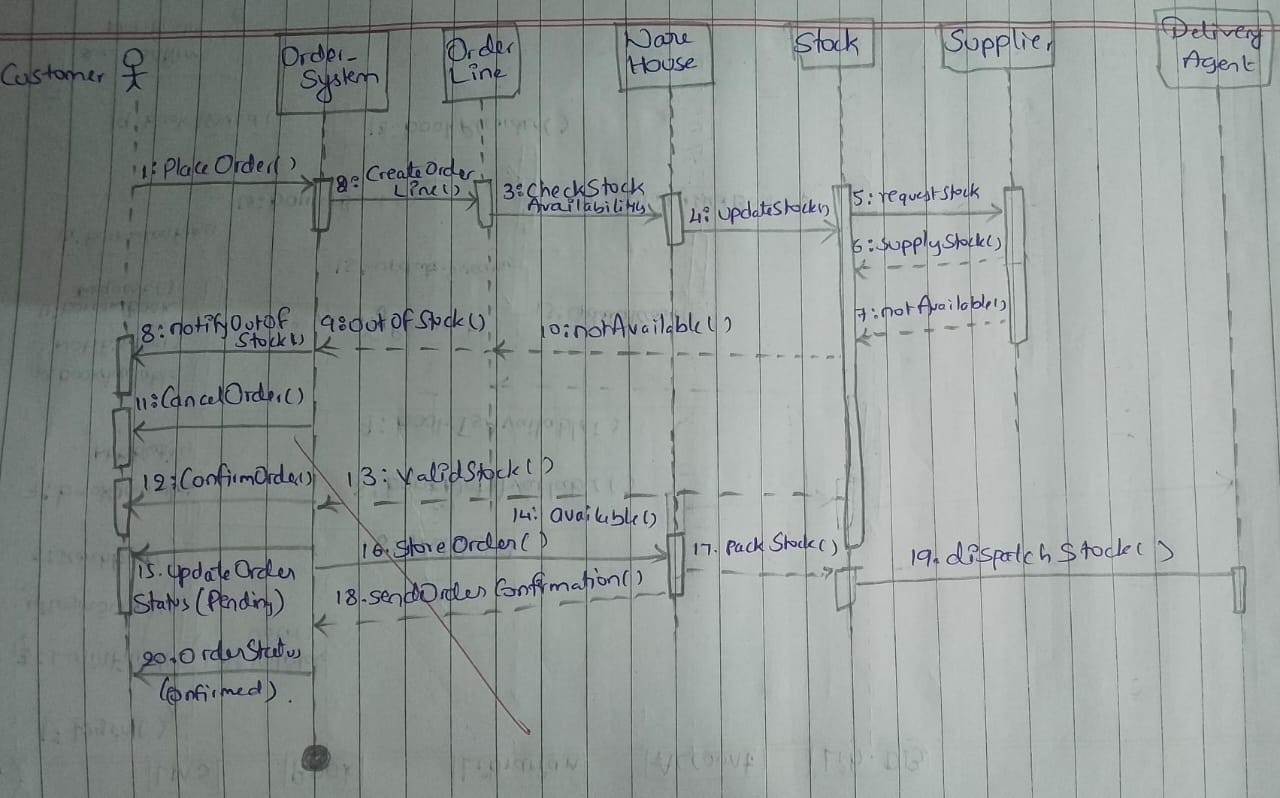 Customer
Order-
System
Order
Line
Ware
House
Stock
Supplier
Delivery
Agent
1: Place Order()
2: Create Order
Line()
3: CheckStock
Availability
4: UpdateStock()
5: requestStock
6: SupplyStock()
7: notAvailable()
8: notifyOutOf
Stock()
9: OutOfStock()
10: notAvailable()
11: CancelOrder()
12: ConfirmOrder()
13: ValidStock()
14: available()
15. UpdateOrder
Status (Pending)
16. StoreOrder()
17. Pack Stock()
18. sendOrder Confirmation()
19. dispatch Stock()
20. OrderStatus
(Confirmed).